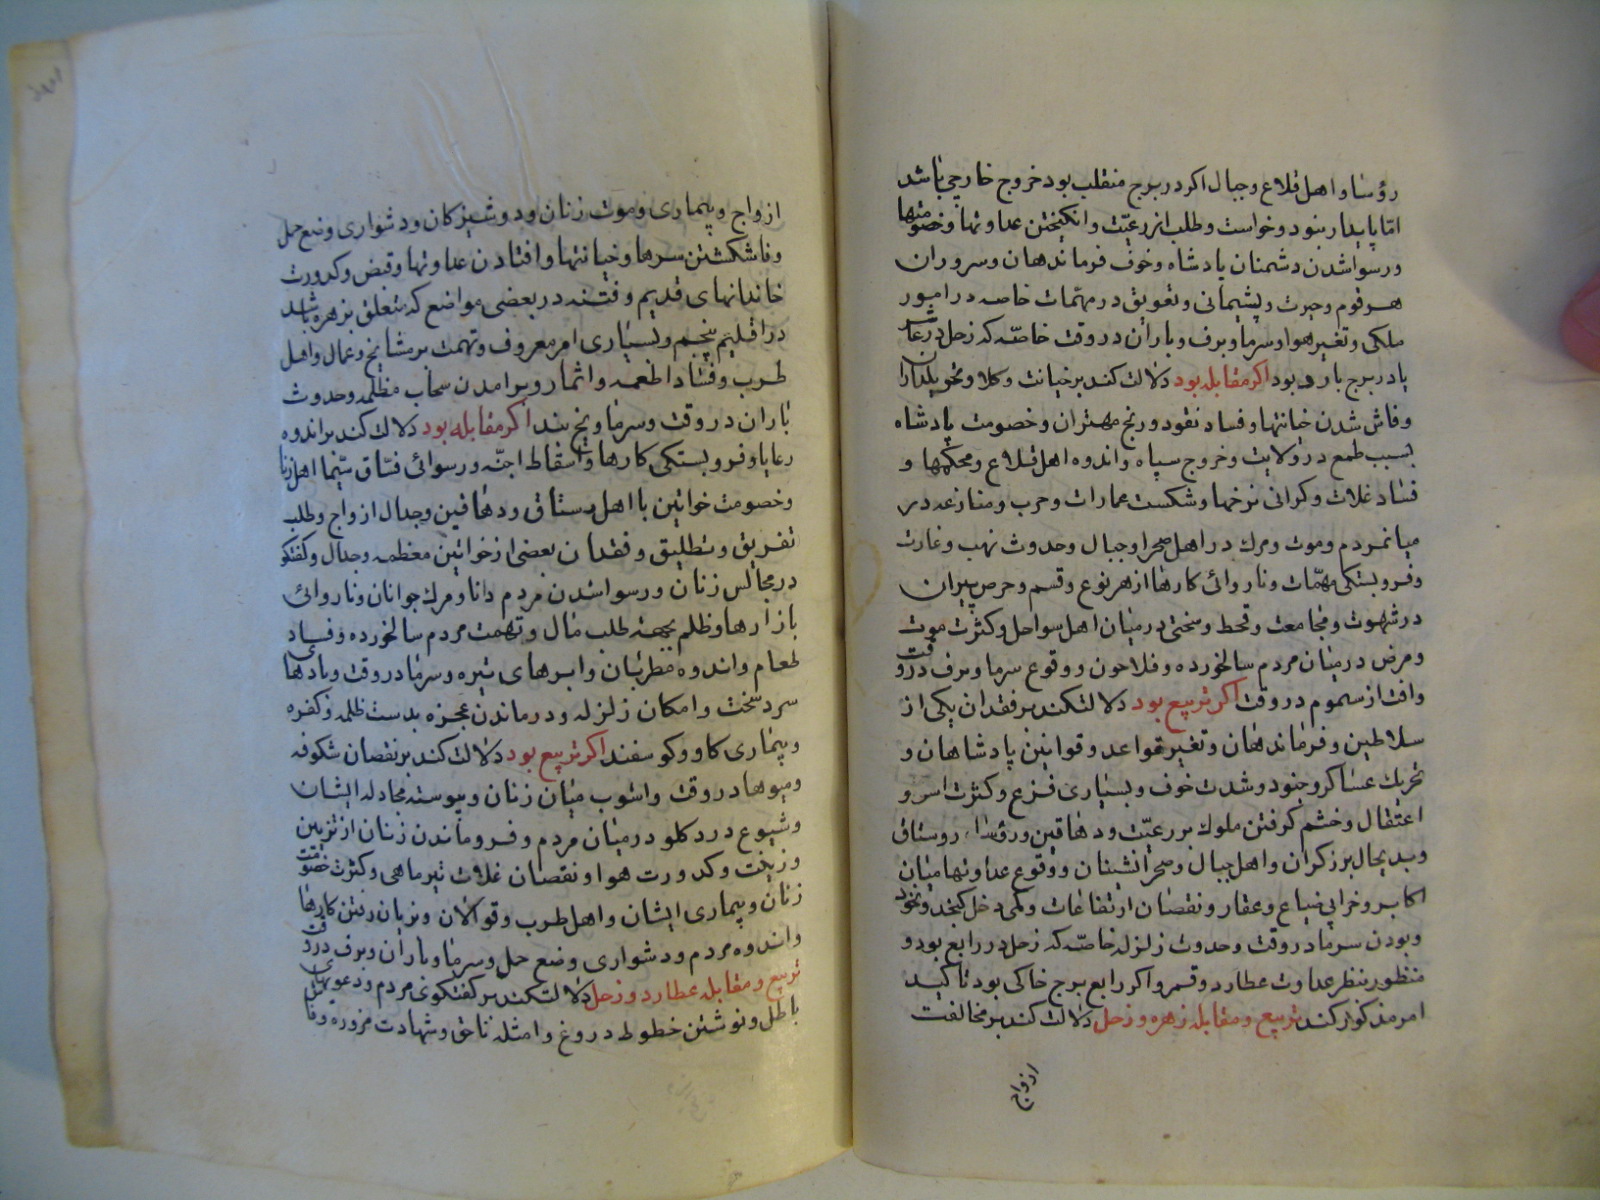 رؤسا و اهل قلاع و جبال اکر در برج منقلب بود خروج خارجی باشد
امّا پایدار نبود و خواست و طلب از رعیّت و انکیختن عداوتها و خصومتها
و رسوا شدن دشمنان پادشاه و خوف فرماندهان و سروران
هر قوم و حیرت و پشیمانی و تعویق در مهمّات خاصه در امور
ملکی و تغیر هوا و سرما و برف و باران در وقت خاصّه که زحل در عاشر
یا در برج بارد بود اکر مقابله بود دلالت کند بر خیانت وکلا و تحویلداران
و فاش شدن خیانتها و فساد نقود و رنج مهتران و خصومت پادشاه
بسبب طمع در ولایت و خروج سپاه و اندوه اهل قلاع و محکمها و
فساد غلات و کرانی نرخها و شکست عمارات و حرب و منازعه در
میان مردم و موت و مرک در اهل صحرا و جبال و حدوث نهب و غارت
و فروبستکی مهمّات و ناروائی کارها از هر نوع و قسم و حرص پیران
در شهوت و مجامعت و قحط و سختی در میان اهل سواحل و کثرت موت
و مرض در میان مردم سالخورده و فلاحون و وقوع سرما و برف در وقت
و افت از سموم در وقت اکر تربیع بود دلالت کند بر فقدان یکی از
سلاطین و فرماندهان و تغیر قواعد و قوانین پادشاهان و
تحریک عساکر و جنود و شدت خوف و بسیاری فزع و کثرت اسر و
اعتقال و خشم کرفتن ملوک بر رعیّت و دهاقین و رؤساء روستاق
و بدیحال برزکران و اهل جبال و صحرانشینان و وقوع عداوتها میان
اکابر و خرابی ضیاع و عقار و نقصان ارتفاعات و کمی دخل
و بودن سرما در وقت و حدوث زلزله خاصّه که زحل در رابع بود و
منظور بنظر عداوت عطارد و قمر و اکر رابع برج خاکی بود تاکید
امر مذکور کند تربیع و مقابله زهره و زحل دلالت کند بر مخالفت
ازواج
ازواج و بیماری و موت زنان و دوشیزکان و دشواری وضع حمل
و فاش کشتن سرها و خیانتها و افتادن عداوتها و قبض و کدورت
خاندانهای قدیم و فتنه در بعضی مواضع که متعلق بزهره باشد
در اقلیم پنجم و بسیاری امر معروف و تهمت بر مشایخ و عمال و اهل
طرب و فساد اطعمه و اثمار و برامدن سحاب مظلمه و حدوث
باران در وقت و سرما و یخ بند اکر مقابله بود دلالت کند بر اندوه
رعایا و فروبستکی کارها و اسقاط اجنّه و رسوائی فسّاق سیّما اهل زنا
و خصومت خواتین با اهل رستاق و دهاقین و جدال ازواج و طلب
تفریق و تطلیق و فقدان بعضی از خواتین معظمه و جدال و کفتکو
در مجالس زنان و رسوا شدن مردم دانا و مرک جوانان و ناروائی
بازارها و ظلم بجهة طلب مال و تهمت مردم سالخورده و فساد
طعام و اندوه مطربان و ابرهای تیره و سرما در وقت و بادهای
سرد سخت و امکان زلزله و درماندن عجزه بدست ظلمه و کفره
و بیماری کاو و کوسفند اکر تربیع بود دلالت کند بر نقصان شکوفه
و میوها در وقت و اشوب میان زنان و پیوسته مجادله ایشان
و شیوع درد کلو در میان مردم و فروماندن زنان از تزیین
و زینت و کدورت هوا و نقصان غلات تیرماهی و کثرت خصومت
زنان و بیماری ایشان و اهل طرب و قوالان و بزیان رفتن کارها
و اندوه مردم و دشواری وضع حمل و سرما و باران و برف در وقت
تربیع و مقابله عطارد و زحل دلالت کند بر کفتکوی مردم و دعویهای
باطل و نوشتن خطوط دروغ و امثله ناحق و شهادت مزوره و فا